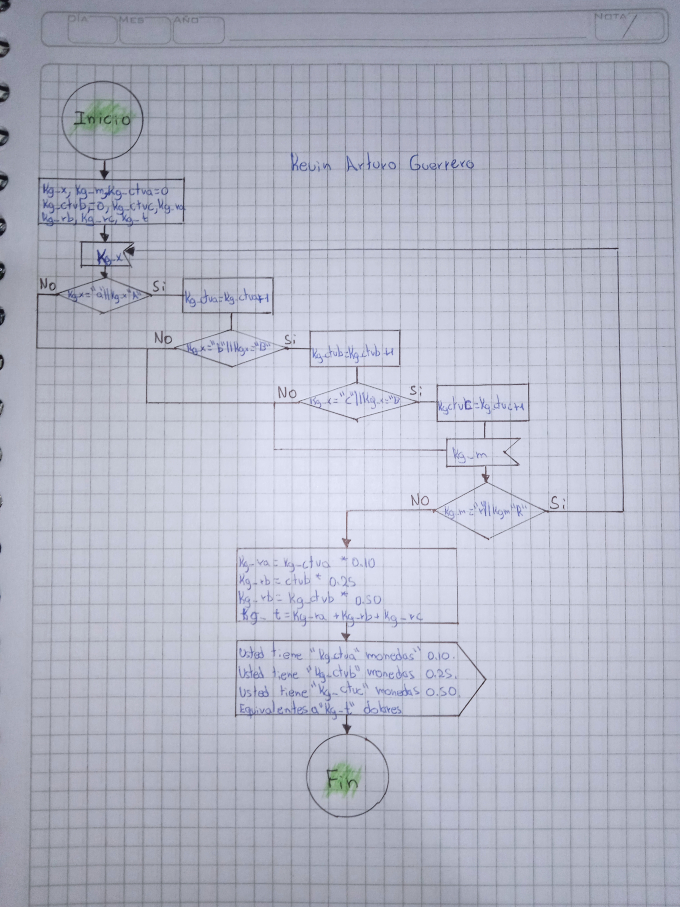 DÍA MES AÑO NOTA
Inicio
Kevin Arturo Guerrero
Kg-x, Kg-m, Kg-ctva=0
Kg-ctvb=0, Kg-ctvc, Kg-ra
Kg-rb, Kg-rc, Kg-t
Kg-x
No Kg-x="a"||Kg-x"A" Si Kg-ctva=Kg-ctva+1
No Kg-x="b"||Kg-x="B" Si Kg-ctvb=Kg-ctvb+1
No Kg-x="c"||Kg-x= Si Kg-ctvc=Kg-ctvc+1
Kg-m
No Kg-m="r"||Kg-m"R" Si
Kg-ra=Kg-ctva * 0.10
Kg-rb=ctvb * 0.25
Kg-rb=Kg-ctvb * 0.50
Kg-t=Kg-ra+Kg-rb+Kg-rc
Usted tiene "Kg-ctva" monedas" 0.10.
Usted tiene "Kg-ctvb" monedas 0.25.
Usted tiene "Kg-ctvc" monedas 0.50.
Equivalentes a "Kg-t" dolares
Fin